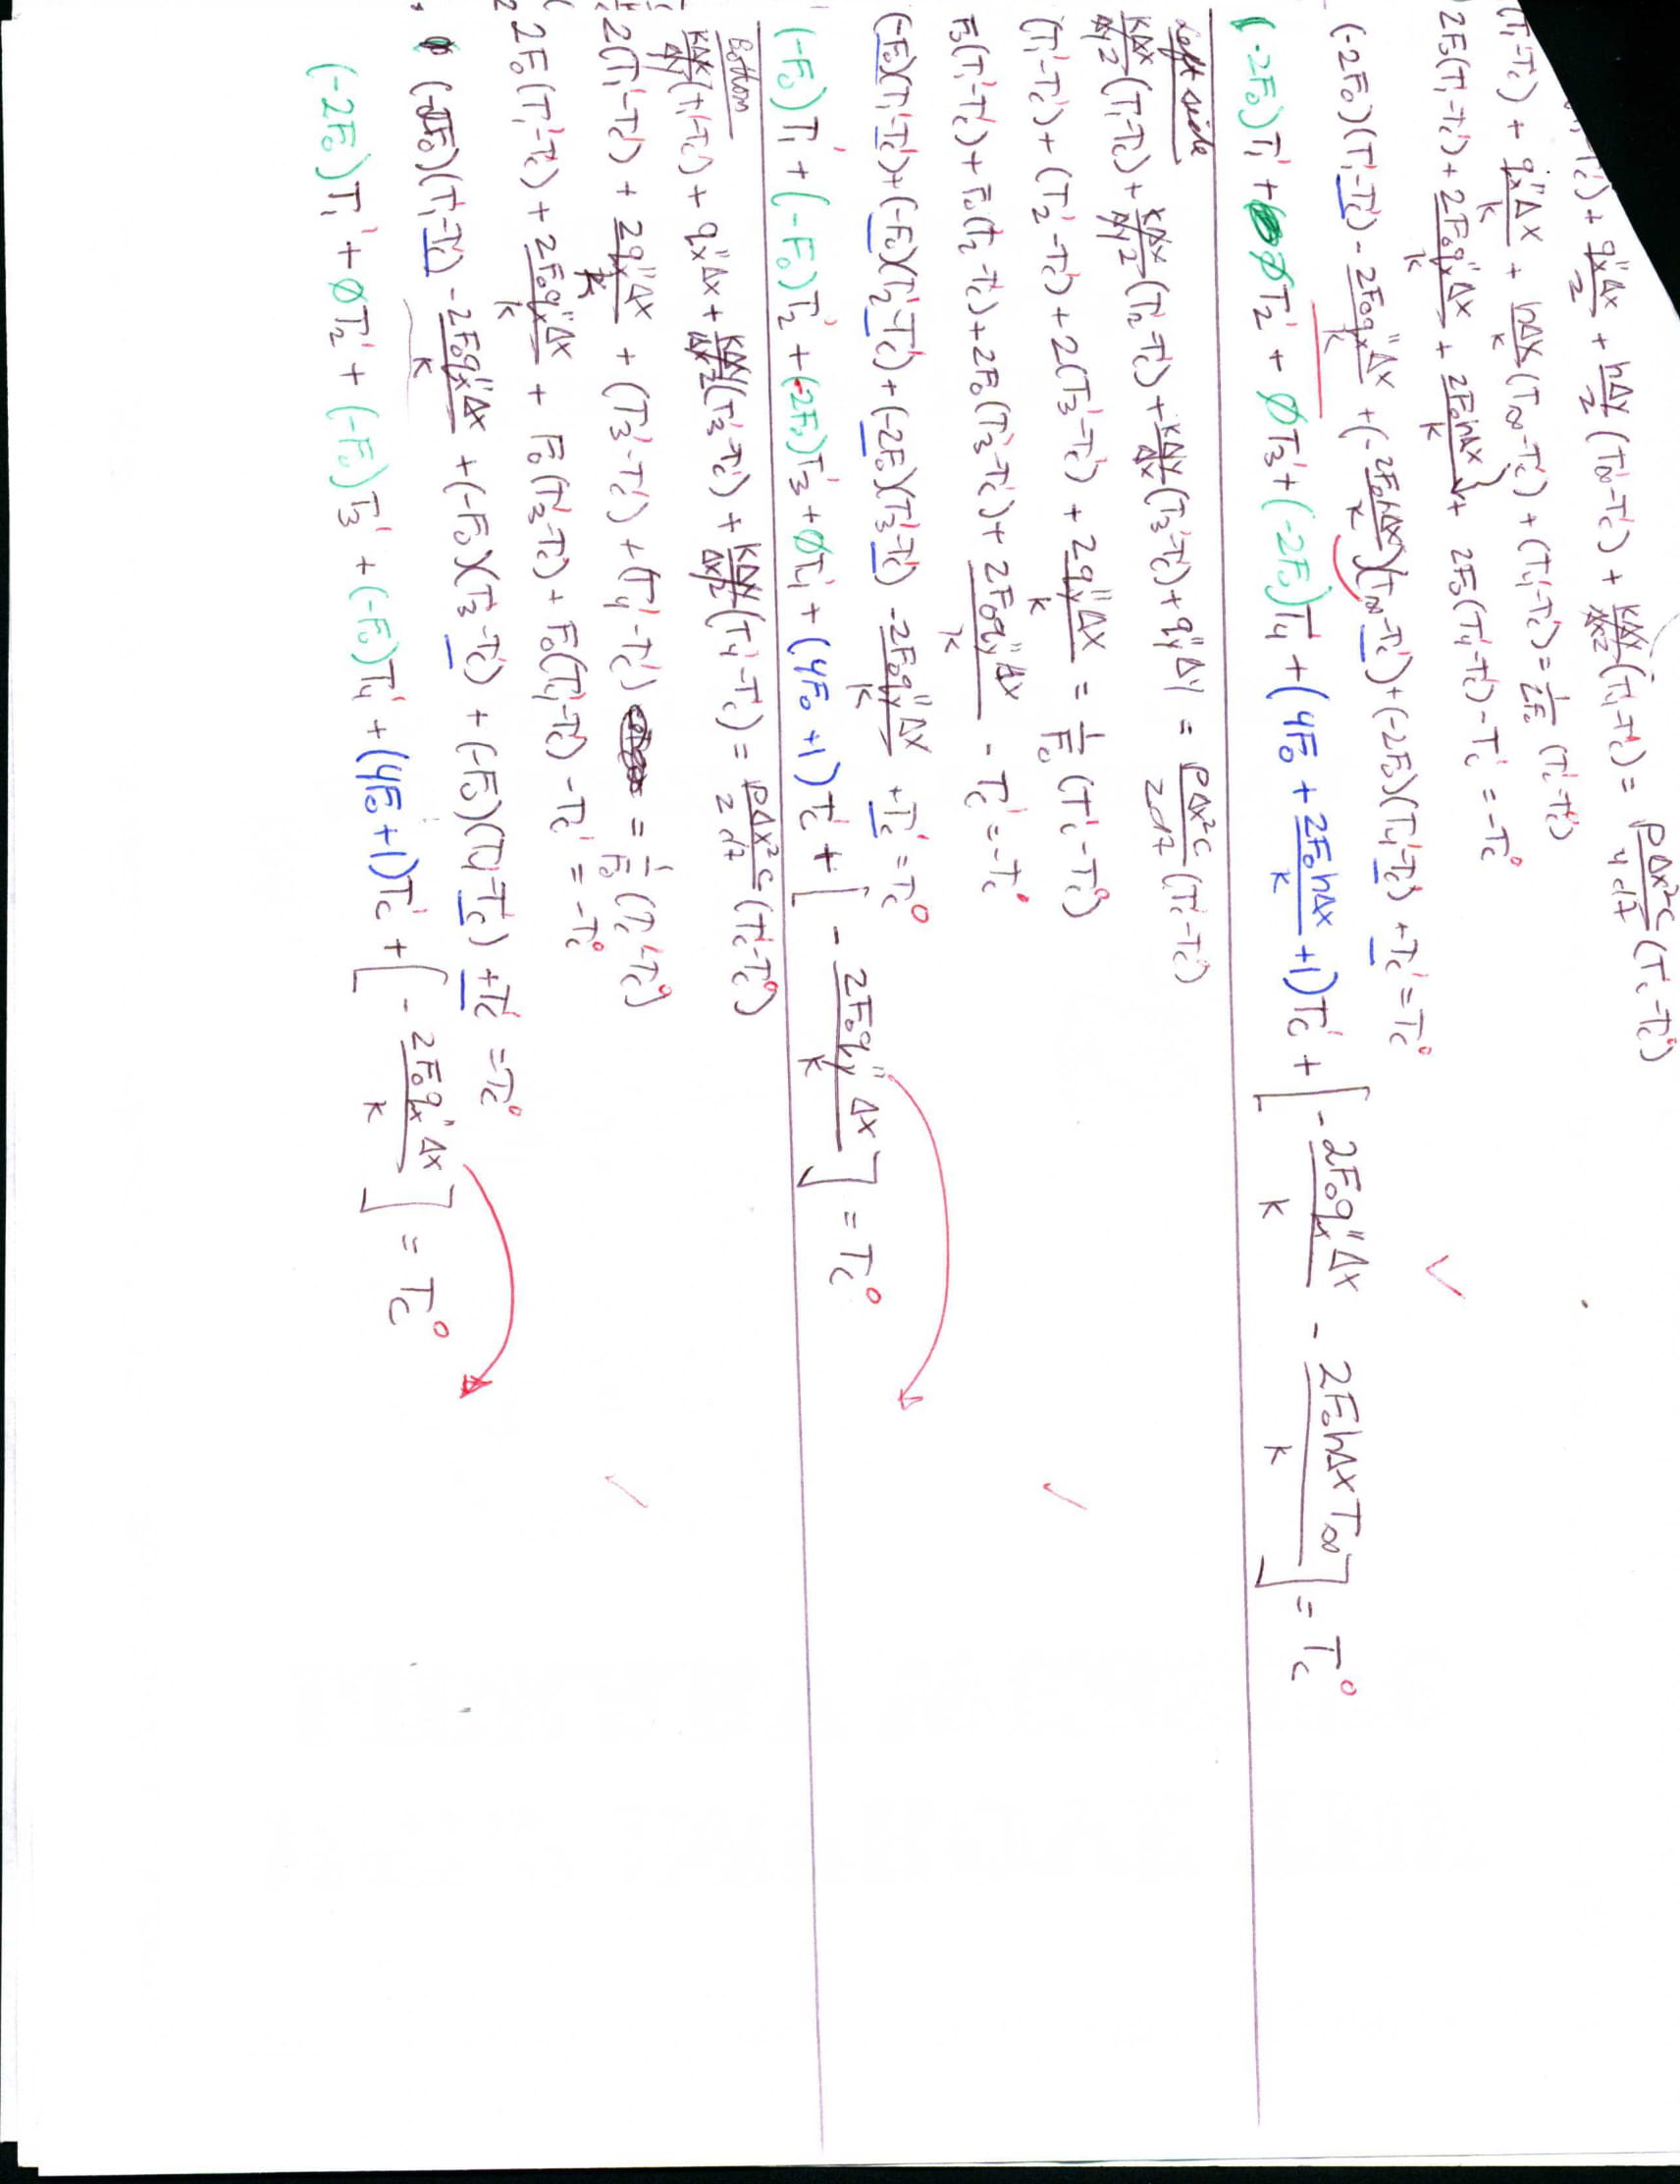 T_c') + q_x''Δx/2 + hΔy/2 (T_∞-T_c') + kΔy/Δx2 (T_4'-T_c') = ρΔx²c/4dt (T_c'-T_c⁰)
(T_1'-T_c') + q_x''Δx/k + hΔx/k (T_∞-T_c') + (T_4'-T_c') = 1/2F_o (T_c'-T_c⁰)
2F_o(T_1'-T_c') + 2F_o q_x''Δx/k + 2F_o hΔx/k + 2F_o(T_4'-T_c') - T_c' = -T_c⁰
(-2F_o)(T_1'-T_c') - 2F_o q_x''Δx/k + (-2F_o hΔx/k)(T_∞-T_c') + (-2F_o)(T_4'-T_c') + T_c' = T_c⁰
(-2F_o)T_1' + ∅T_2' + ∅T_3' + (-2F_o)T_4 + (4F_o + 2F_o hΔx/k + 1)T_c' + [-2F_o q_x''Δx/k - 2F_o hΔxT_∞/k] = T_c⁰
Left side
kΔx/Δy2 (T_1'-T_c') + kΔx/Δy2 (T_2'-T_c') + kΔy/Δx (T_3'-T_c') + q_y''Δy = ρΔx²c/2dt (T_c'-T_c⁰)
(T_1'-T_c') + (T_2'-T_c') + 2(T_3'-T_c') + 2q_y''Δx/k = 1/F_o (T_c'-T_c⁰)
F_o(T_1'-T_c') + F_o(T_2'-T_c') + 2F_o(T_3'-T_c') + 2F_o q_y''Δx/k - T_c' = -T_c⁰
(-F_o)(T_1'-T_c') + (-F_o)(T_2'-T_c') + (-2F_o)(T_3'-T_c') - 2F_o q_y''Δx/k + T_c' = T_c⁰
(-F_o)T_1' + (-F_o)T_2' + (-2F_o)T_3' + ∅T_4' + (4F_o+1)T_c' + [-2F_o q_y''Δx/k] = T_c⁰
Bottom
kΔx/Δy (T_1'-T_c') + q_x''Δx + kΔy/Δx2 (T_3'-T_c') + kΔy/Δx2 (T_4'-T_c') = ρΔx²c/2dt (T_c'-T_c⁰)
2(T_1'-T_c') + 2q_x''Δx/k + (T_3'-T_c') + (T_4'-T_c') = 1/F_o (T_c'-T_c⁰)
2F_o(T_1'-T_c') + 2F_o q_x''Δx/k + F_o(T_3'-T_c') + F_o(T_4'-T_c') - T_c' = -T_c⁰
(-2F_o)(T_1'-T_c') - 2F_o q_x''Δx/k + (-F_o)(T_3'-T_c') + (-F_o)(T_4'-T_c') + T_c' = T_c⁰
(-2F_o)T_1' + ∅T_2' + (-F_o)T_3' + (-F_o)T_4' + (4F_o+1)T_c' + [-2F_o q_x''Δx/k] = T_c⁰